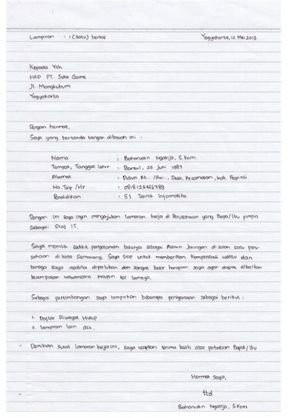 Lampiran : 1 (satu) berkas Yogyakarta, 12 Mei 2013
Kepada Yth
HRD PT. Suka Game
Jl. Mangkubumi
Yogyakarta
Dengan hormat,
Saya yang bertanda tangan dibawah ini :
Nama : Baharudin Ngaerjo, S.Kom
Tempat, Tanggal lahir : Bantul, 25 Juni 1987
Alamat : Dusun Rt../Rw.., Desa, Kecamatan, Kab, Provinsi
No. Telp / Hp : 08812345
Pendidikan : S1 Teknik Informatika
Dengan ini saya ingin mengajukan lamaran kerja di Perusahaan yang Bapak/Ibu pimpin
sebagai Staf IT.
Saya memiliki sedikit pengalaman bekerja sebagai Admin Jaringan di salah satu peru-
sahaan di kota Semarang. Saya siap untuk memberikan kompetensi waktu dan
tenaga saya apabila dibutuhkan dan sangat besar harapan saya agar dapat diberikan
kesempatan wawancara maupun tes lainnya.
Sebagai pertimbangan saya lampirkan beberapa persyaratan sebagai berikut :
1. Daftar Riwayat Hidup
2. Lampiran lain dst.
Demikian surat lamaran kerja ini, saya ucapkan terima kasih atas perhatian Bapak/Ibu
Hormat Saya,
ttd
Baharudin Ngaerjo, S.Kom